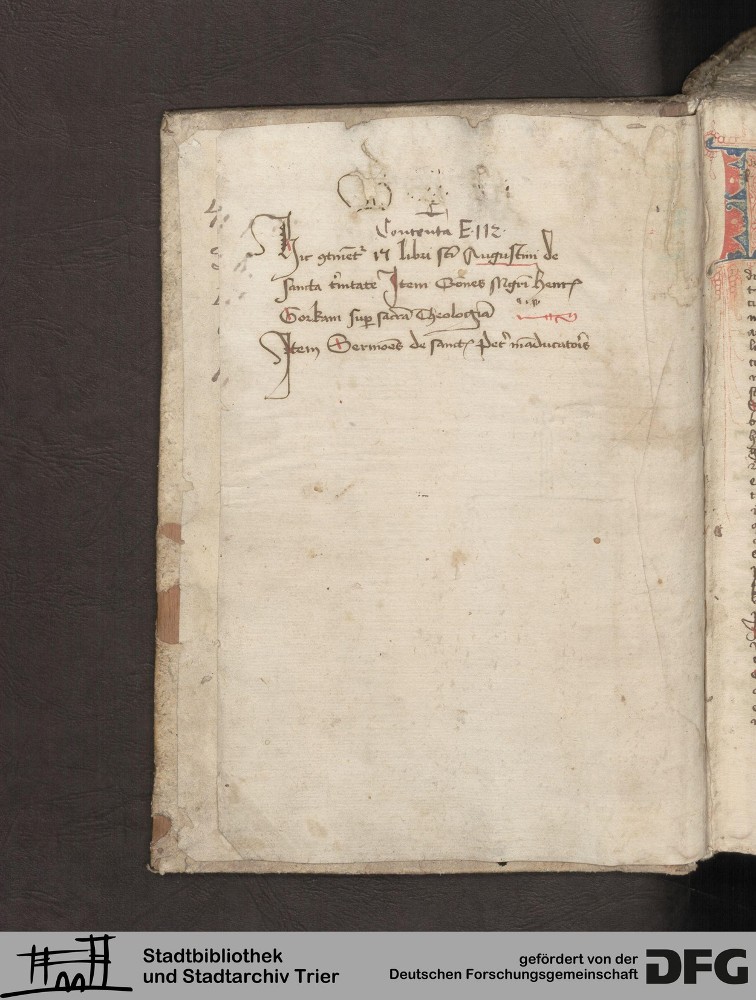 Contenta E. 112.
Hic gtinēt᷑ 15 libri sti Augustini de
sancta t'nitate Item Q̄ones Mgri henr
Gorkam sup sacrā Theologiā
Item Sermoēs de sanct Pet' māducatoris
Stadtbibliothek
und Stadtarchiv Trier
gefördert von der
Deutschen Forschungsgemeinschaft
DFG